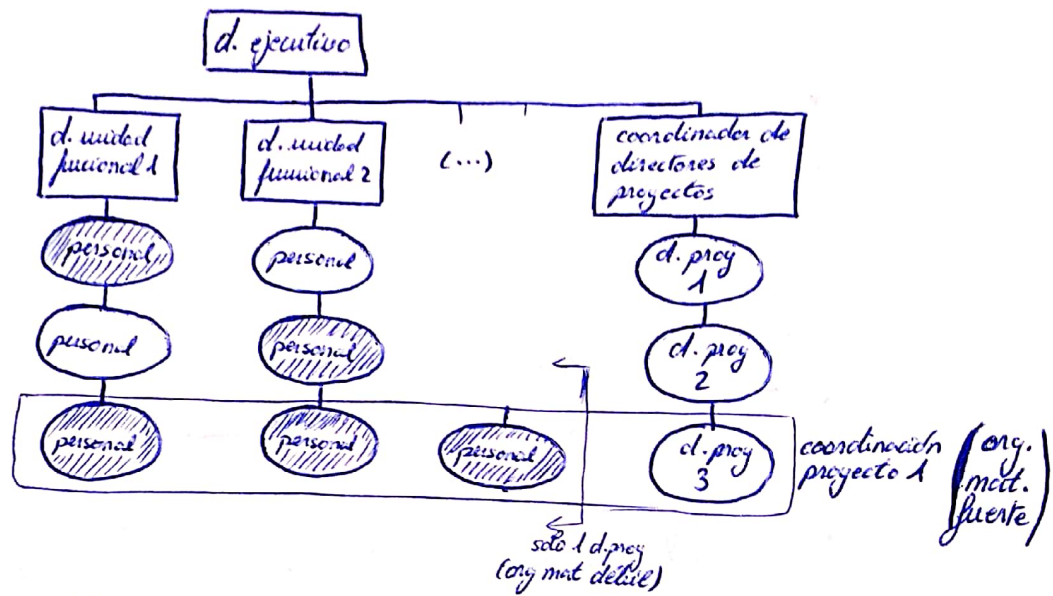 d. ejecutivo
d. unidad
funcional 1
d. unidad
funcional 2
(...)
coordinador de
directores de
proyectos
personal
personal
d. proy
1
personal
personal
d. proy
2
personal
personal
personal
d. proy
3
coordinación
proyecto 1
(org.
mat.
fuerte)
solo 1 d. proy
(org mat débil)